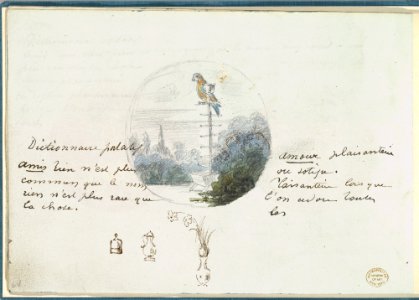 Dictionnaire
amis rien n'est plus
commun que le nom
rien n'est plus rare que
la chose.
amour plaisanterie
ou sotise.
Plaisanterie lorsque
l'on adore toutes
les